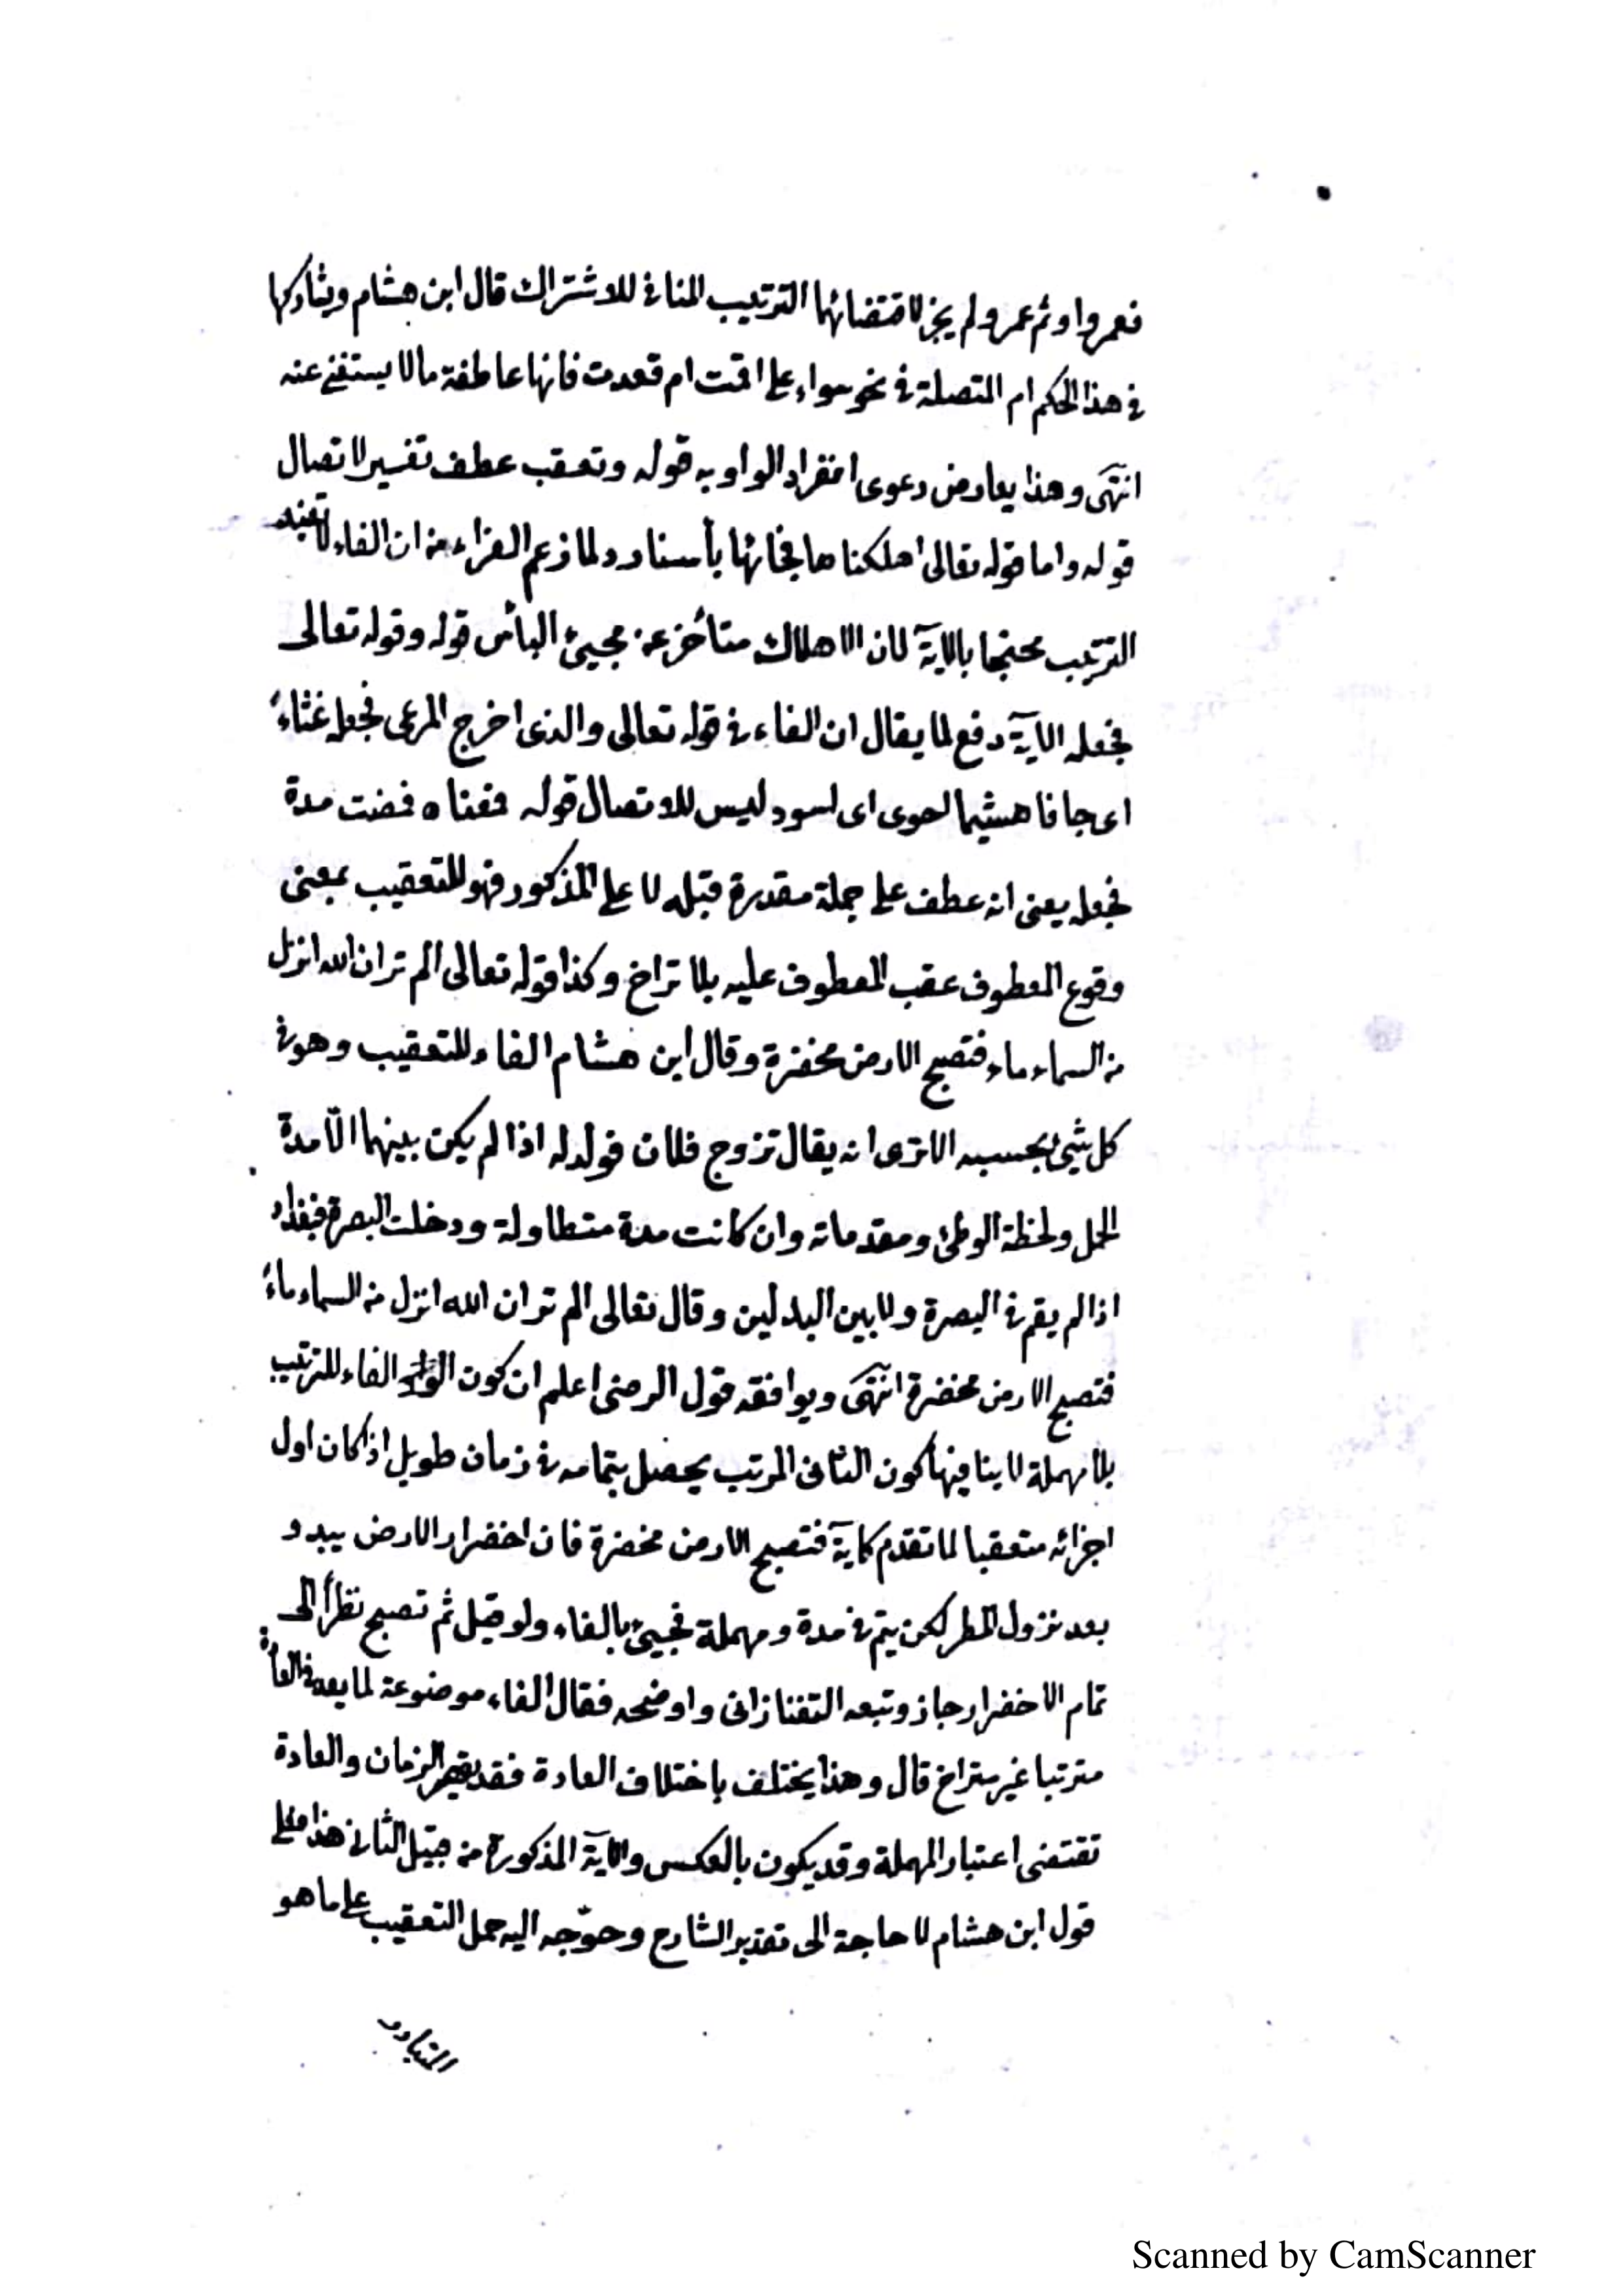 فعمروا وثم عمرو لم يجز لاقتضائها الترتيب المنافى للاشتراك قال ابن هشام ويشاركها
فى هذا الحكم ام المتصلة فى نحو سواء على اقمت ام قعدت فانها عاطفة مالا يستغنى عنه
انتهى وهذا يعارض دعوى انفراد الواو به قوله وتعقب عطف تفسير لاتصال
قوله واما قوله تعالى اهلكنا ها فجائها بأسنا رد لما زعم الفراء من ان الفاء لا تفيد
الترتيب محتجا بالاية لان الاهلاك متأخر عن مجيئ البأس قوله وقوله تعالى
فجعله الآية دفع لما يقال ان الفاء فى قوله تعالى والذى اخرج المرعى فجعله غثاءً
اى جافا هشيما احوى اى اسود ليس للاتصال قوله فمضت مدة
فجعله يعنى انه عطف على جملة مقدرة قبله لا على المذكور فهو للتعقيب بمعنى
وقوع المعطوف عقب المعطوف عليه بلا تراخ وكذا قوله تعالى الم تر ان الله انزل
من السماء ماء فتصبح الارض مخضرة وقال ابن هشام الفاء للتعقيب وهو فى
كل شيئ بحسبه الاترى انه يقال تزوج فلان فولد له اذا لم يكن بينهما الّا مدة
الحمل ولحظة الوطئ ومقدماته وان كانت مدة متطاولة ودخلت البصرة فبغداد
اذا لم يقم فى البصرة ولابين البلدين وقال تعالى الم تر ان الله انزل من السماء ماءً
فتصبح الارض مخضرة انتهى ويوافقه قول الرضى اعلم ان كون الفاء للترتيب
بلا مهملة لا ينافيها كون الثانى المرتب يحصل بتمامه فى زمان طويل اذا كان اول
اجزائه متعقبا لما تقدم كاية فتصبح الارض مخضرة فان اخضرار الارض يبدو
بعد نزول المطر لكن يتم فى مدة ومهملة فجيئ بالفاء ولو قيل ثم تصبح نظراً الى
تمام الاخضرار جاز وتبعه التفتازانى واوضحه فقال الفاء موضوعة لما يعد فى العادة
مترتبا غير متراخ قال وهذا يختلف باختلاف العادة فقد يقصر الزمان والعادة
تقتضى اعتبار المهملة وقد يكون بالعكس والآية المذكورة من قبيل الثانى هذا فعلى
قول ابن هشام لا حاجة الى تقدير الشارح وحوّجه اليه حمل التعقيب على ما هو
المتبادر
Scanned by CamScanner